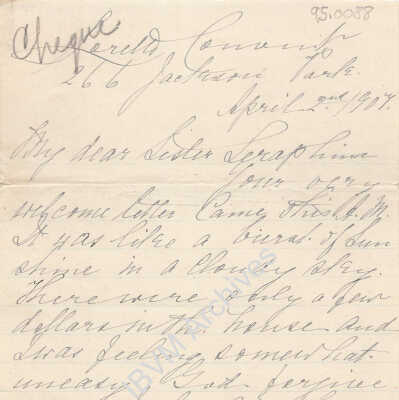 95.0088
Cheque
Loretto Convent
266 Jackson Park.
April 2nd/1907.
My dear Sister Seraphine
Your very
welcome letter Came this A.M.
It was like a burst of Sun
shine in a cloudy sky.
There were only a few
dollars in the house and
I was feeling somewhat
uneasy God forgive
IBVM Archives